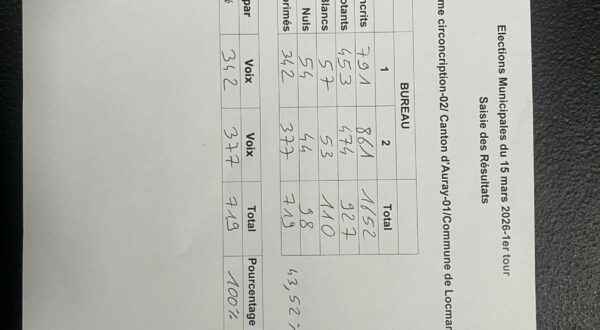 Elections Municipales du 15 mars 2026-1er tour
Saisie des Résultats
me circoncription-02/ Canton d'Auray-01/Commune de Locmar
BUREAU
1 2 Total
ncrits 791 861 1652
otants 453 474 927
Blancs 57 53 110
Nuls 54 44 98
primés 342 377 719 43,52 %
par Voix Voix Total Pourcentage
342 377 719 100%